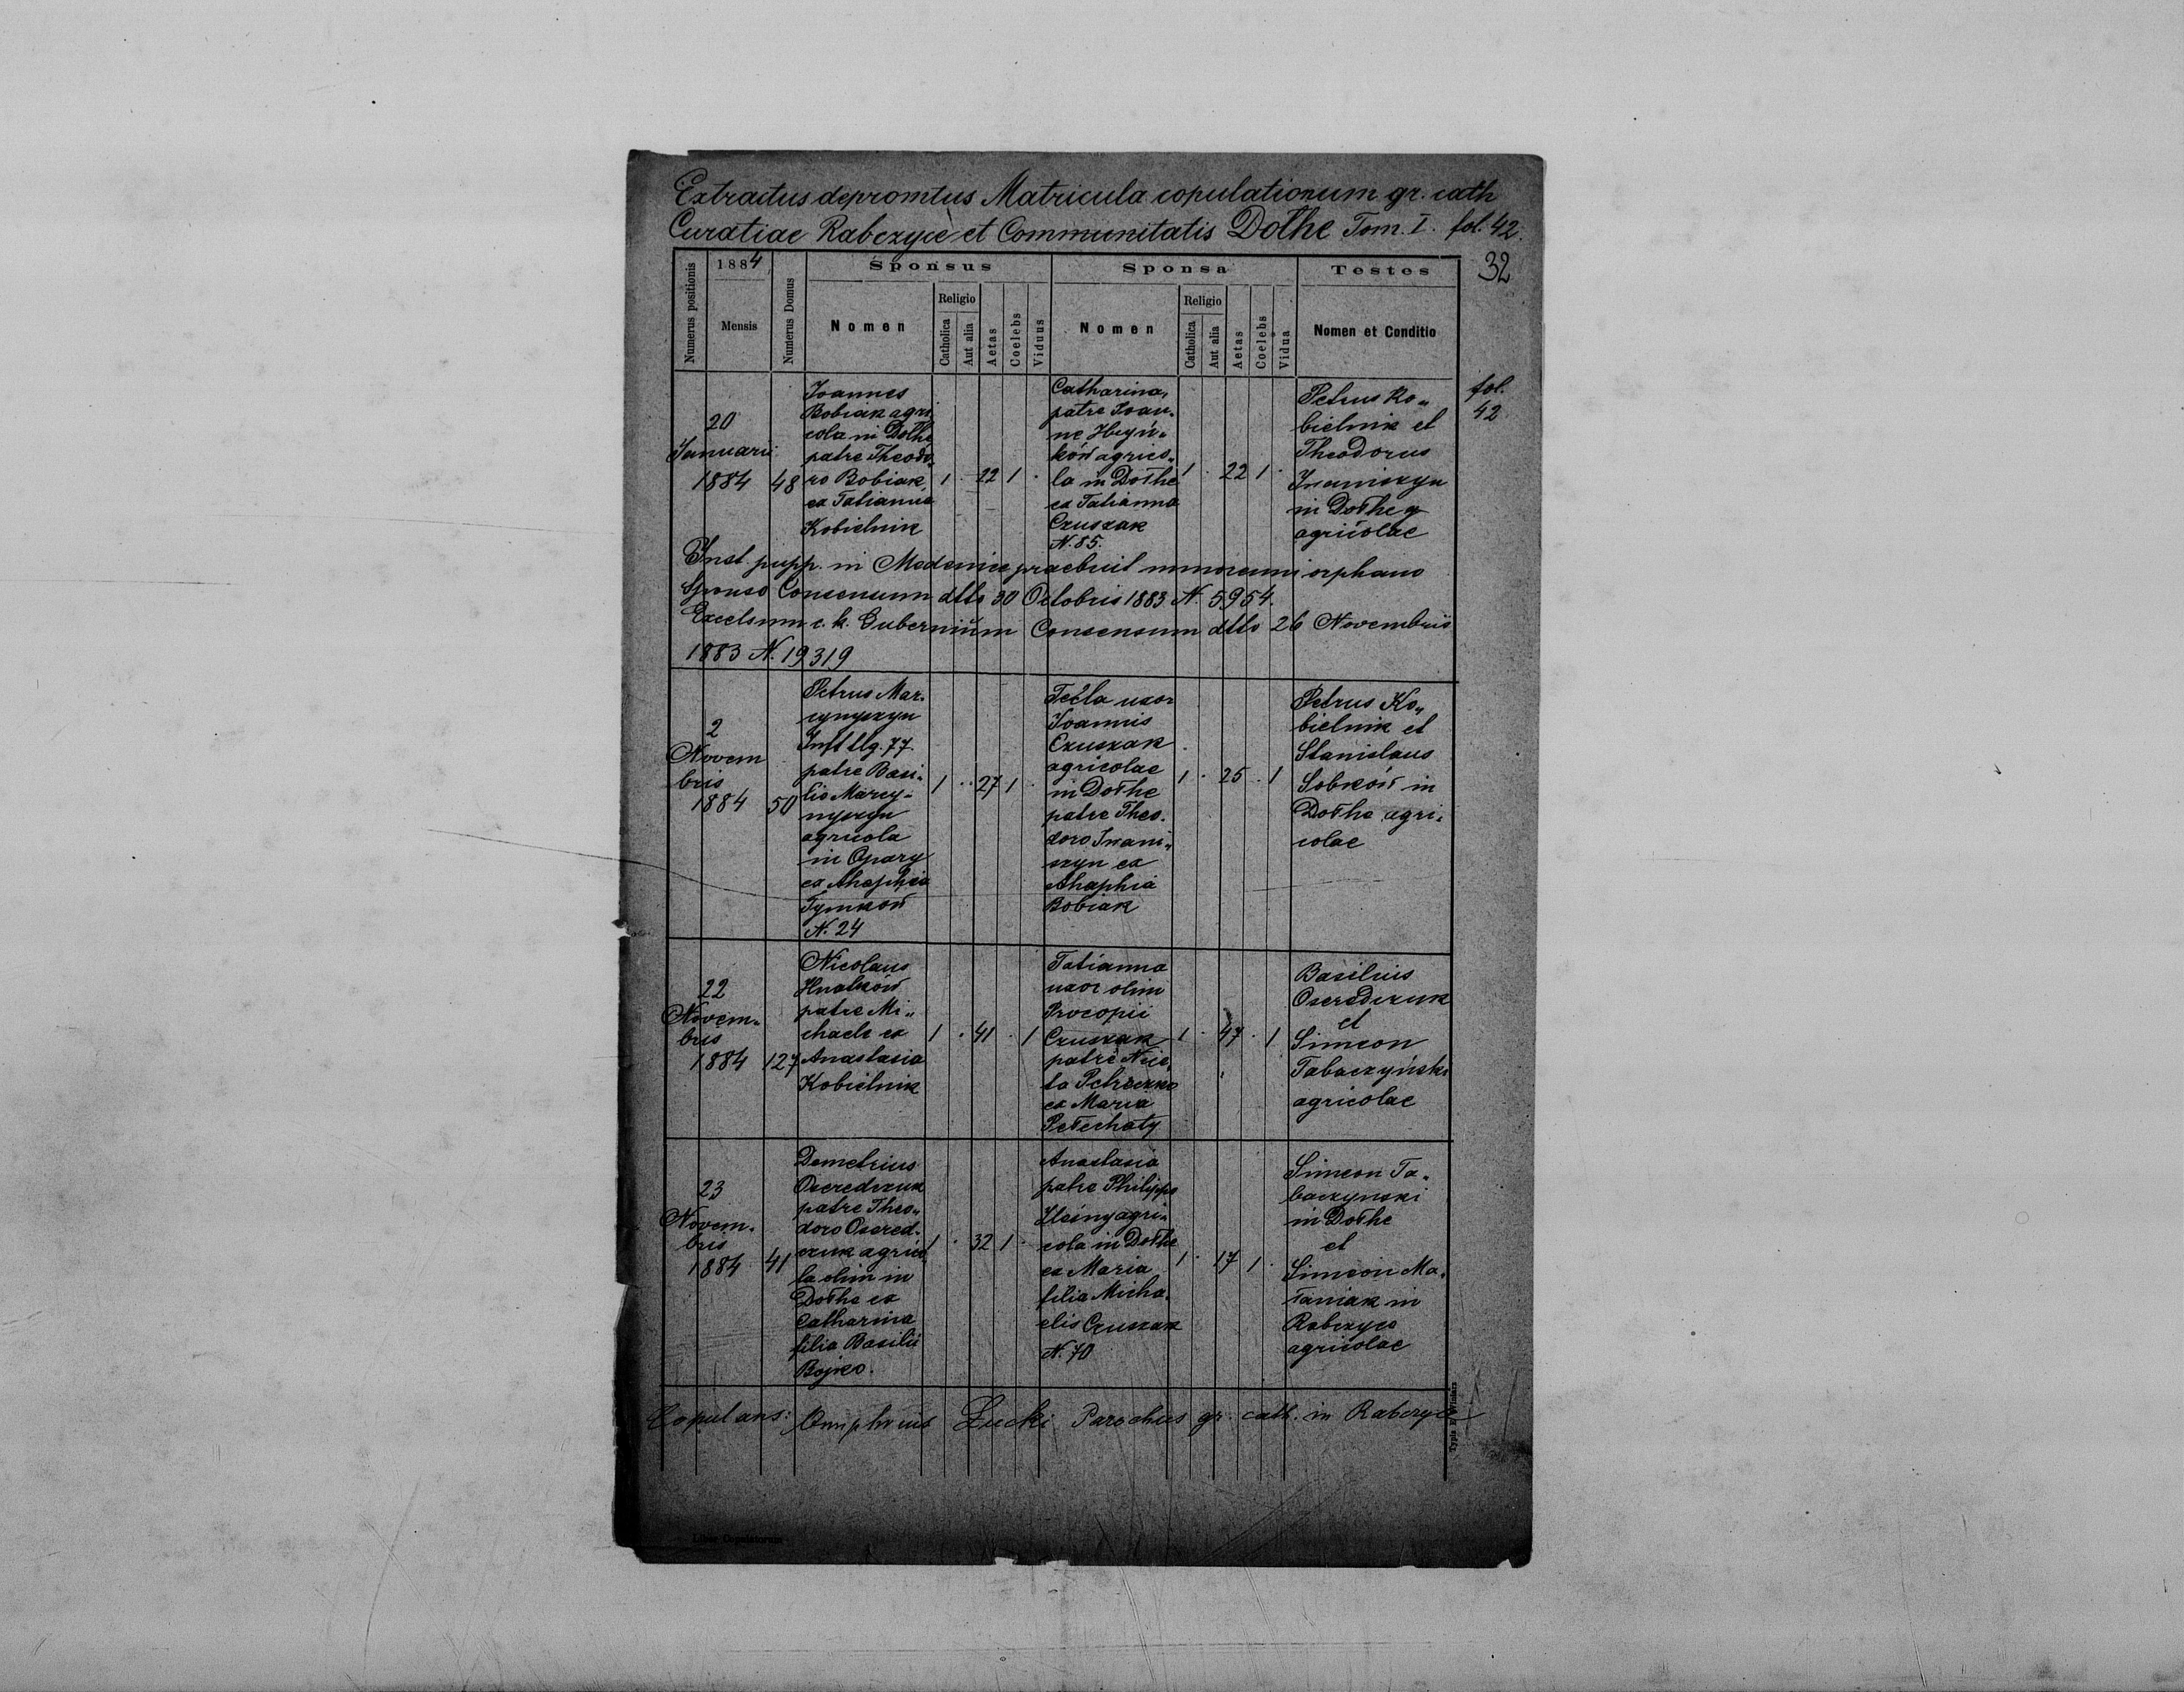 Extractus depromtus Matricula copulationum gr. cath
Curatiae Rabczyce et Communitatis Dołhe Tom. I. fol. 42.
32
Numerus positionis
1884
Mensis
Numerus Domus
Sponsus
Nomen
Religio
Catholica
Aut alia
Aetas
Coelebs
Viduus
Sponsa
Nomen
Religio
Catholica
Aut alia
Aetas
Coelebs
Vidua
Testes
Nomen et Conditio
fol.
42
20
Januarii
1884
48
Joannes
Bobiak agri
cola in Dołhe
patre Theodo„
ro Bobiak
ex Tatianna
Kobielnik
1 . 22 1 .
Catharina,
patre Joan„
ne
ków agrico„
la in Dołhe
ex Tatianna
Czuszak
N. 85.
1 . 22 1 .
Petrus Ko„
bielnik et
Theodorus
Iwaniszyn
in Dołhe
agricolae
Inst. pupp. in Medenice praebuit minorenni orphano
Sponso Consensum dtto 30 Octobris 1883 N. 5954.
Excelsum c. k. Gubernium Consensum dtto 26 Novembris
1883 N. 19319
2
Novem
bris
1884
50
Petrus Mar.
cynyszyn
77.
patre Basi„
lio Marcy„
nyszyn
agricola
in Opary
ex Ahaphia
Tymków
N. 24
1 . . 27 1 .
Tecla uxor
Joannis
Czuszak
agricolae
in Dołhe
patre Theo.
doro Iwani„
szyn ex
Ahaphia
Bobiak
1 . 25 . 1
Petrus Ko„
bielnik et
Stanislaus
Sobków in
Dołhe agri„
colae
22
Novem„
bris
1884
127
Nicolaus
Hnatków
patre Mi„
chaele ex
Anastasia
Kobielnik
1 . 41 . 1
Tatianna
uxor olim
Procopii
Czuszak
patre Nice„
ta Petryczko
ex Maria
Petechaty
1 . 47 . 1
Basilius
Oseredczuk
et
Simeon
Tabaczyński
agricolae
23
Novem„
bris
1884
41
Demetrius
Oseredczuk
patre Theo„
doro Osered„
czuk agrico
la olim in
Dołhe ex
Catharina
filia Basilii
Bojko.
1 . 32 1 .
Anastasia
patre Philippo
Ilciny agri„
cola in Dołhe
ex Maria
filia Micha„
elis Czuszak
N. 70
1 . 17 1 .
Simeon Ta„
baczynski
in Dołhe
et
Simeon Ma„
łaniak in
Rabczyce
agricolae
Copulans: Onuphrius Łucki Parochus gr. cath. in Rabczyce
Liber Copulatorum